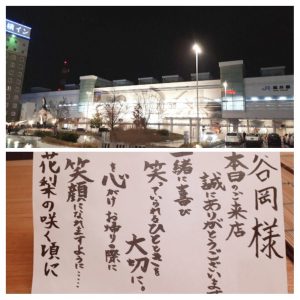 横イン
JR
谷岡様
本日のご来店
誠にありがとうございます
一緒に喜び
笑っていられるひとときを
大切に。
を心がけお帰りの際に
笑顔になれますように……
花梨の咲く頃に